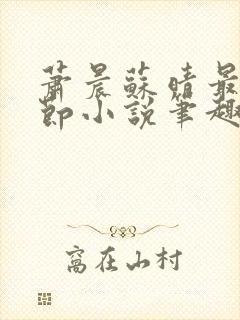 蕭晨蘇晴最
節小說筆趣
窩在山村